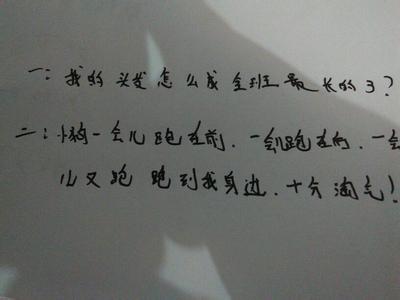 一:我的头发怎么成全班最长的了?
二:小狗一会儿跑在前,一会儿跑在向,一会
儿又跑 跑到我身边,十分淘气!